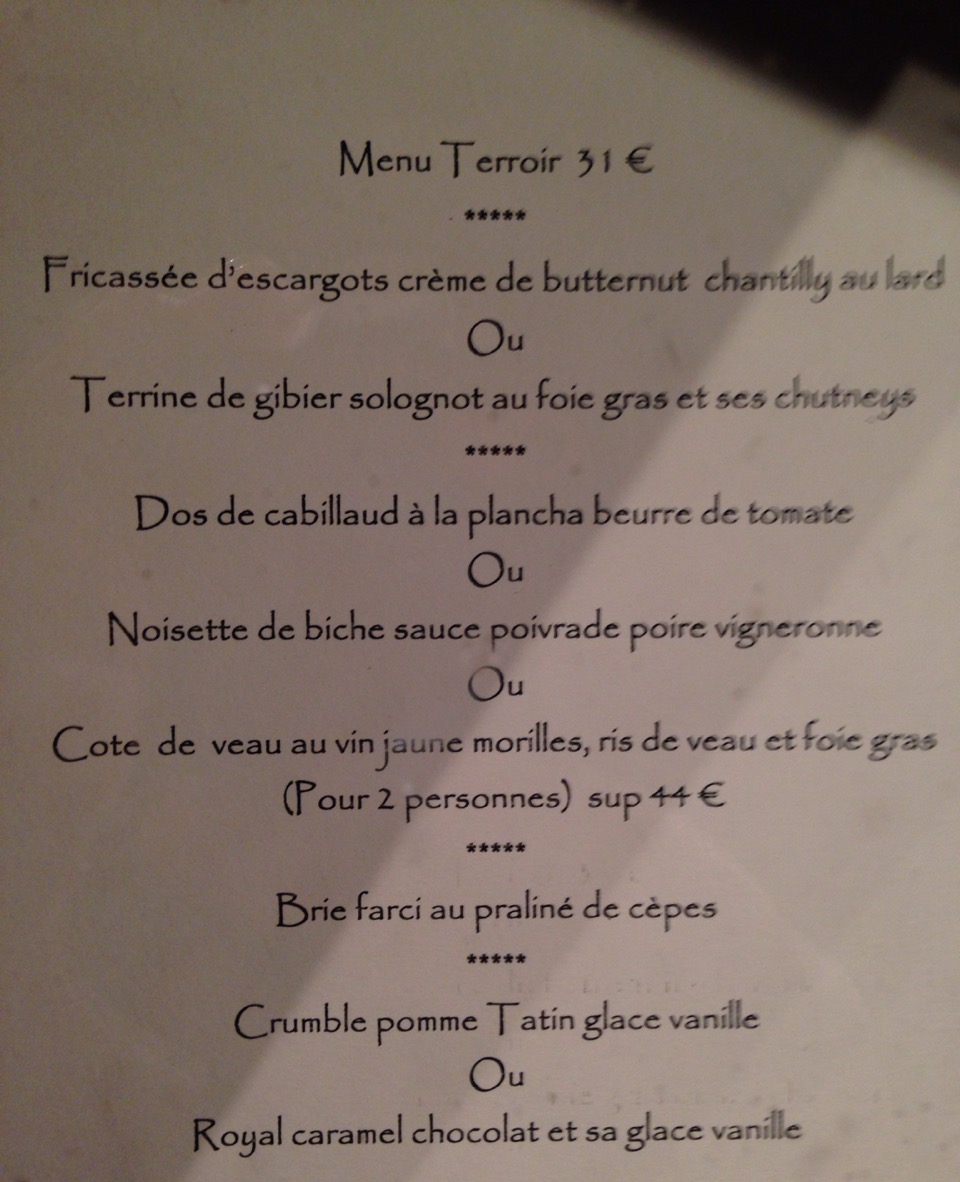 Menu Terroir 31 €
*****
Fricassée d'escargots crème de butternut chantilly au lard
Ou
Terrine de gibier solognot au foie gras et ses chutneys
*****
Dos de cabillaud à la plancha beurre de tomate
Ou
Noisette de biche sauce poivrade poire vigneronne
Ou
Cote de veau au vin jaune morilles, ris de veau et foie gras
(Pour 2 personnes) sup 44 €
*****
Brie farci au praliné de cèpes
*****
Crumble pomme Tatin glace vanille
Ou
Royal caramel chocolat et sa glace vanille